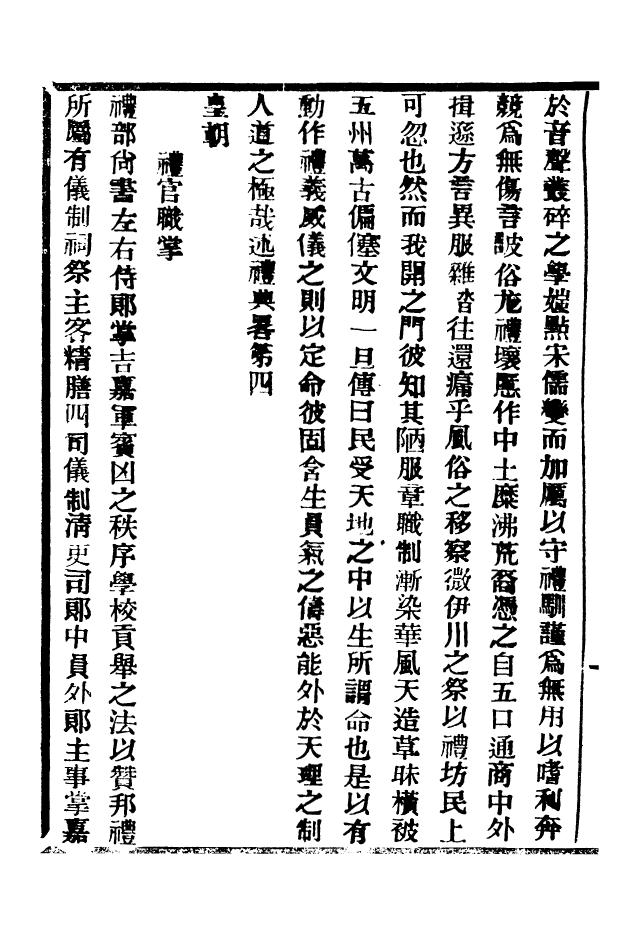 於音聲叢碎之學媸點宋儒變而加厲以守禮馴謹爲無用以嗜利奔
競爲無傷言詖俗尨禮壞慝作中土糜沸荒裔憑之自五口通商中外
揖遜方言異服雜沓往還痛乎風俗之移察微伊川之祭以禮坊民上
可忽也然而我開之門彼知其陋服章職制漸染華風天造草昧橫被
五州萬古偏僿文明一旦傳曰民受天地之中以生所謂命也是以有
動作禮義威儀之則以定命彼固含生員氣之儔惡能外於天理之制
人道之極哉述禮典畧第四
皇朝
禮官職掌
禮部尙書左右侍郞掌吉嘉軍賓凶之秩序學校貢舉之法以贊邦禮
所屬有儀制祠祭主客精膳四司儀制淸吏司郞中員外郞主事掌嘉